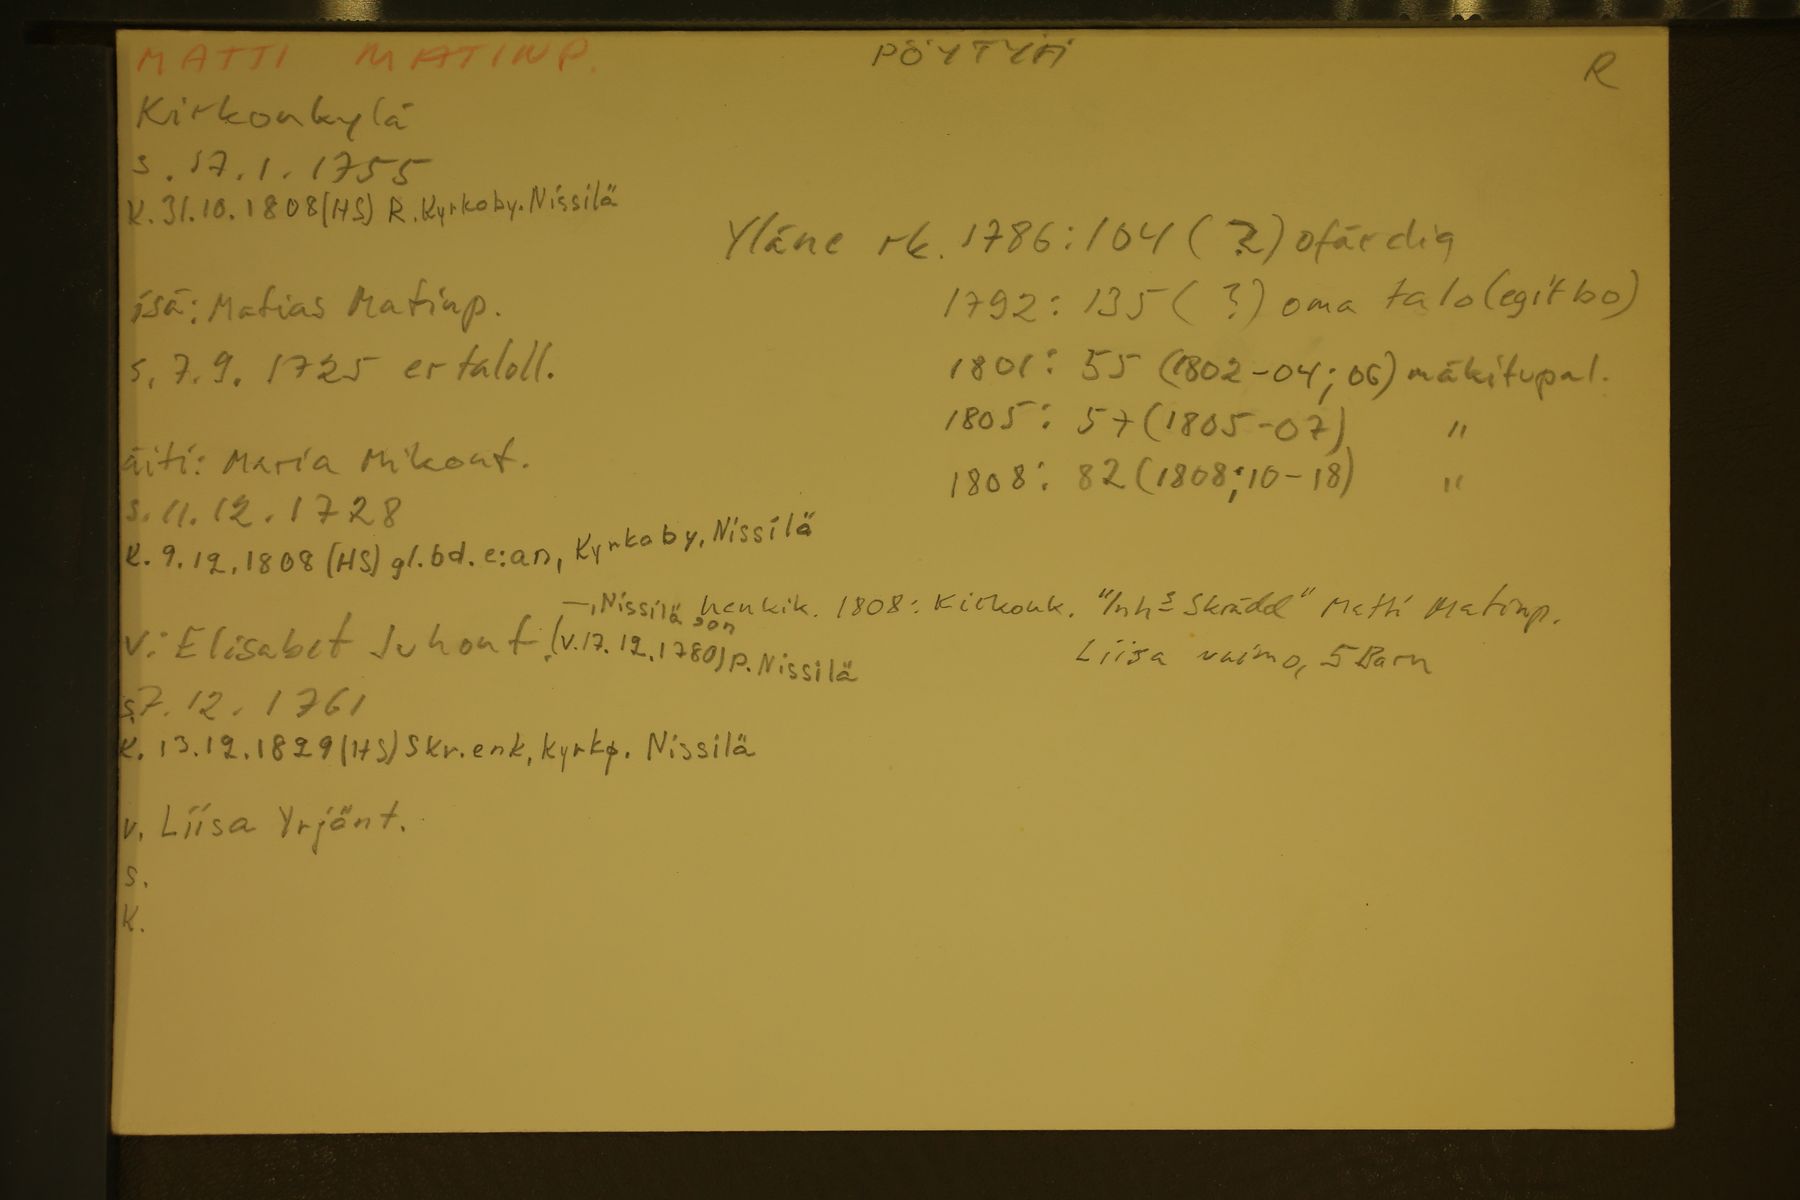 MATTI MATINP. PÖYTYÄ R
Kirkonkylä
s. 17.1.1755
K. 31.10.1808 (HS) R. Kyrkoby. Nissilä
Yläne rk. 1786: 104 (?) ofärdig
isä: Matias Matinp.
1792: 135 (?) oma talo (egit bo)
s. 7.9.1725 er taloll.
1801: 55 (1802-04; 06) mäkitupal.
1805: 57 (1805-07) "
äiti: Maria Mikont.
1808: 82 (1808; 10-18) "
s. 11.12.1728
K. 9.12.1808 (HS) gl. bd. e:an, Kyrkoby, Nissilä
—, Nissilä son
henkik. 1808: Kirkonk. "Inhs Skrädd" Matti Matinp.
v: Elisabet Juhont. (v. 17.12.1780) p. Nissilä
Liisa vaimo, 5 Barn
s. 7.12.1761
K. 13.12.1829 (HS) Skr. enk, kyrkp. Nissilä
v. Liisa Yrjönt.
s.
K.